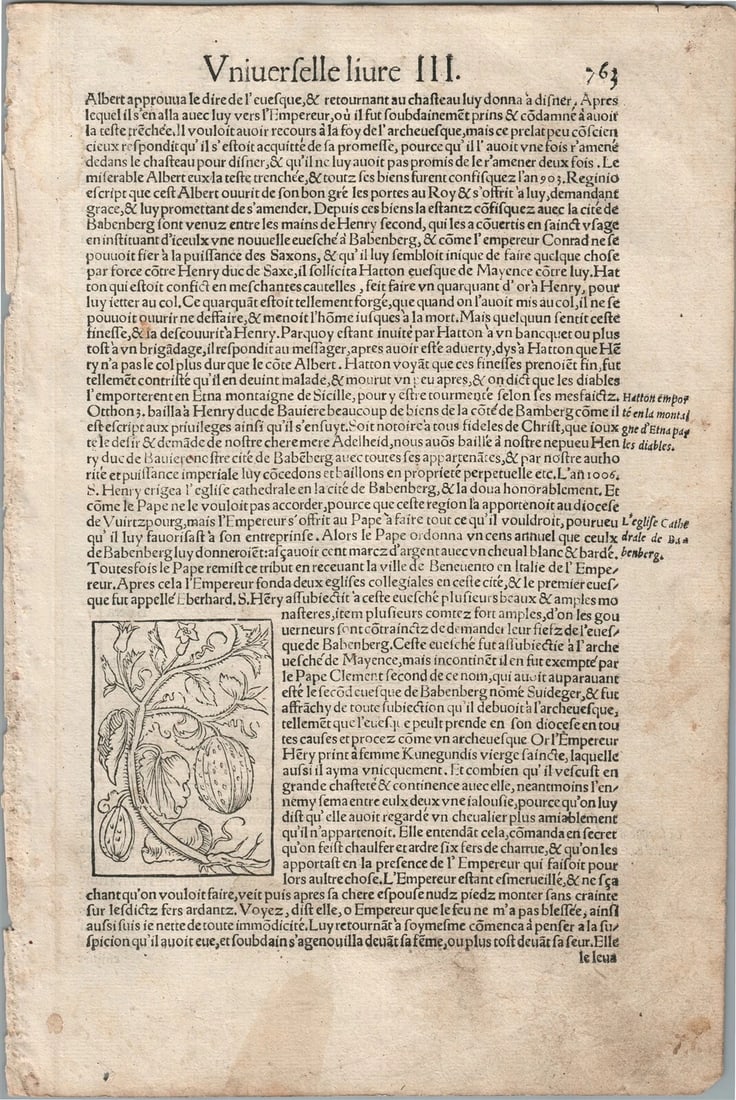 Vniuerſelle liure III.
763
Albert approuua le dire de l'eueſque,& retournant au chaſteau luy donna à diſner, Apres
lequel il s'en alla auec luy vers l'Empereur,où il fut ſoubdainemēt prins & cōdamné à auoir
la teſte trēchée.Il vouloit auoir recours à la foy de l'archeueſque,mais ce prelat peu cōſcien
cieux reſpondit qu'il s'eſtoit acquitté de ſa promeſſe, pource qu'il l'auoit vne fois r'amené
dedans le chaſteau pour diſner,& qu'il ne luy auoit pas promis de le r'amener deux fois . Le
miſerable Albert eux la teſte trenchée,& toutz ſes biens furent confiſquez l'an 903. Reginio
eſcript que ceſt Albert ouurit de ſon bon gré les portes au Roy & s'offrit à luy,demandant
grace,& luy promettant de s'amender. Depuis ces biens la eſtantz cōfiſquez auec la cité de
Babenberg ſont venuz entre les mains de Henry ſecond, qui les a cōuertis en ſainct vſage
en inſtituant d'iceulx vne nouuelle eueſché à Babenberg, & cōme l'empereur Conrad ne ſe
pouuoit fier à la puiſſance des Saxons, & qu'il luy ſembloit inique de faire quelque choſe
par force cōtre Henry duc de Saxe,il ſollicita Hatton eueſque de Mayence cōtre luy.Hat
ton qui eſtoit confict en meſchantes cautelles , feit faire vn quarquant d'or à Henry, pour
luy ietter au col.Ce quarquāt eſtoit tellement forgé,que quand on l'auoit mis au col,il ne ſe
pouuoit ouurir ne deffaire,& menoit l'hōme iuſques à la mort.Mais quelquun ſentit ceſte
fineſſe,& la deſcouurit à Henry.Parquoy eſtant inuité par Hatton à vn bancquet ou plus
toſt à vn brigādage,il reſpondit au meſſager,apres auoir eſté aduerty,dys à Hatton que Hē
ry n'a pas le col plus dur que le cōte Albert . Hatton voyāt que ces fineſſes prenoiēt fin,fut
tellement contriſté qu'il en deuint malade,& mourut vn peu apres,& on dict que les diables
l'emporterent en Etna montaigne de Sicille, pour y eſtre tourmenté ſelon ſes mesfaictz.
Hatton empor
té en la montai
gne d'Etna par
les diables.
Otthon 3. bailla à Henry duc de Bauiere beaucoup de biens de la cōté de Bamberg cōme il
eſt eſcript aux priuileges ainſi qu'il s'enſuyt.Soit notoire à tous fideles de Chriſt,que ioux
te le deſir & demāde de noſtre chere mere Adelheid,nous auōs baillé à noſtre nepueu Hen
ry duc de Bauiere noſtre cité de Babēberg auec toutes ſes appartenāces,& par noſtre autho
rité et puiſſance imperiale luy cōcedons et baillons en proprieté perpetuelle etc.L'an 1006.
S. Henry erigea l'egliſe cathedrale en la cité de Babenberg,& la doua honorablement. Et
cōme le Pape ne le vouloit pas accorder,pource que ceſte region là apportenoit au dioceſe
de Vuirtzpourg,mais l'Empereur s'offrit au Pape à faire tout ce qu'il vouldroit, pourueu
L'egliſe Cathe
drale de Ba
benberg.
qu'il luy fauoriſaſt à ſon entreprinſe. Alors le Pape ordonna vn cens annuel que ceulx
de Babenberg luy donneroiēt:aſçauoir cent marcz d'argent auec vn cheual blanc & bardé.
Toutesfois le Pape remiſt ce tribut en receuant la ville de Beneuento en Italie de l'Empe-
reur. Apres cela l'Empereur fonda deux egliſes collegiales en ceſte cité,& le premier eueſ-
que fut appellé Eberhard. S.Hēry aſſubiectit à ceſte eueſché pluſieurs beaux & amples mo
naſteres,item pluſieurs comtez fort amples,d'on les gou
uerneurs ſont cōtrainctz de demander leur fiefz de l'eueſ-
que de Babenberg.Ceſte eueſché fut aſſubiectie à l'arche
ueſché de Mayence,mais incontinēt il en fut exempté par
le Pape Clement ſecond de ce nom,qui auoit auparauant
eſté le ſecōd eueſque de Babenberg nōmé Suideger,& fut
affrāchy de toute ſubiection qu'il debuoit à l'archeueſque,
tellemēt que l'eueſque peult prende en ſon dioceſe en tou
tes cauſes et procez cōme vn archeueſque Or l'Empereur
Hēry print à femme Kunegundis vierge ſaincte, laquelle
auſſi il ayma vnicquement. Et combien qu'il veſcuſt en
grande chaſteté & continence auec elle, neantmoins l'en-
nemy ſema entre eulx deux vne ialouſie,pource qu'on luy
diſt qu'elle auoit regardé vn cheualier plus amiablement
qu'il n'appartenoit. Elle entendāt cela,cōmanda en ſecret
qu'on feiſt chaulfer et ardre ſix fers de charrue,& qu'on les
apportaſt en la preſence de l'Empereur qui faiſoit pour
lors aultre choſe.L'Empereur eſtant eſmerueillé,& ne ſça
chant qu'on vouloit faire,veit puis apres ſa chere eſpouſe nudz piedz monter ſans crainte
ſur leſdictz fers ardantz. Voyez, diſt elle, o Empereur que le feu ne m'a pas bleſſée, ainſi
auſſi ſuis ie nette de toute immōdicité.Luy retournāt à ſoymeſme cōmença à penſer à la ſu-
ſpicion qu'il auoit eue,et ſoubdain s'agenouilla deuāt ſa fēme,ou plus toſt deuāt ſa ſeur.Elle
le leua